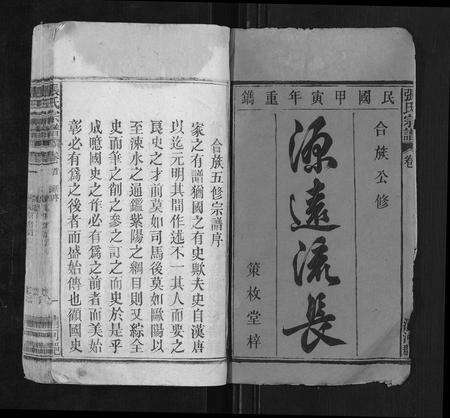 張氏宗譜 卷
民國甲寅年重鐫
合族公修
源遠流長
策枚堂梓
合族五修宗譜序
家之有譜猶國之有史歟夫史自漢唐
以迄元明其間作述不一其人而要之
良史之才前莫如司馬後莫如歐陽以
至涑水之通鑑紫陽之綱目則又綜全
史而筆之削之參之訂之而史於是乎
成嗚國史之作必有為之前者而美始
彰必有為之後者而盛始傳也顧國史
張氏宗譜